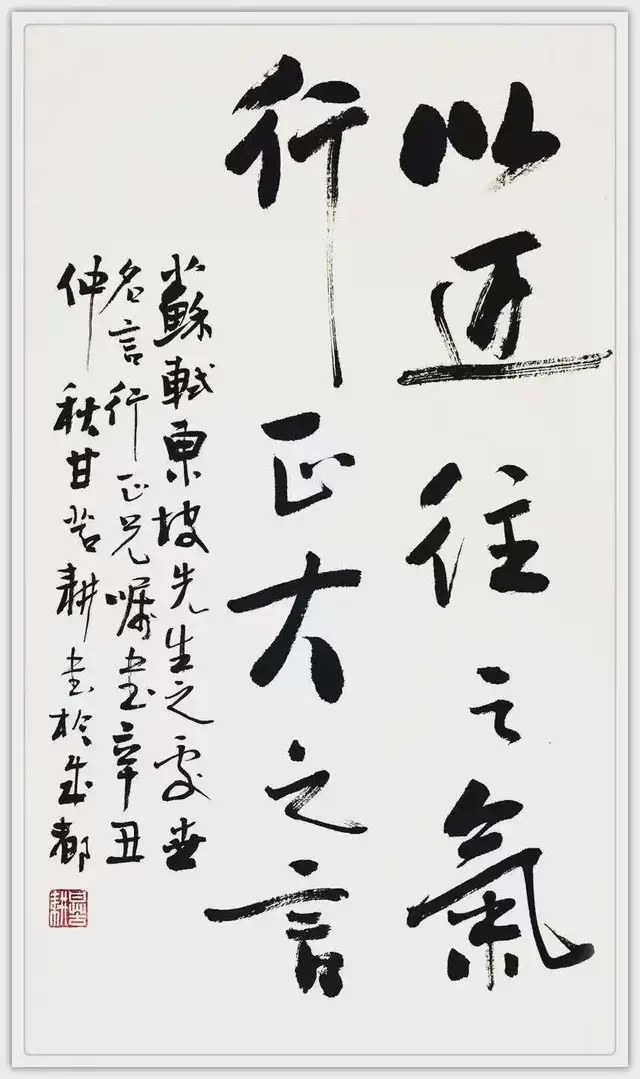 以迈往之氣
行正大之言
蘇軾東坡先生之處世
名言行正兄嘱書辛丑
仲秋甘苦耕書於成都